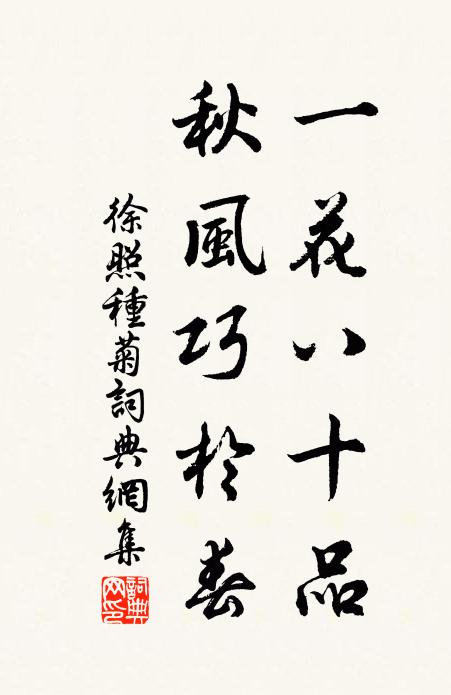 一花八十品
秋風巧於春
徐照種菊詞典網集
詞典网印